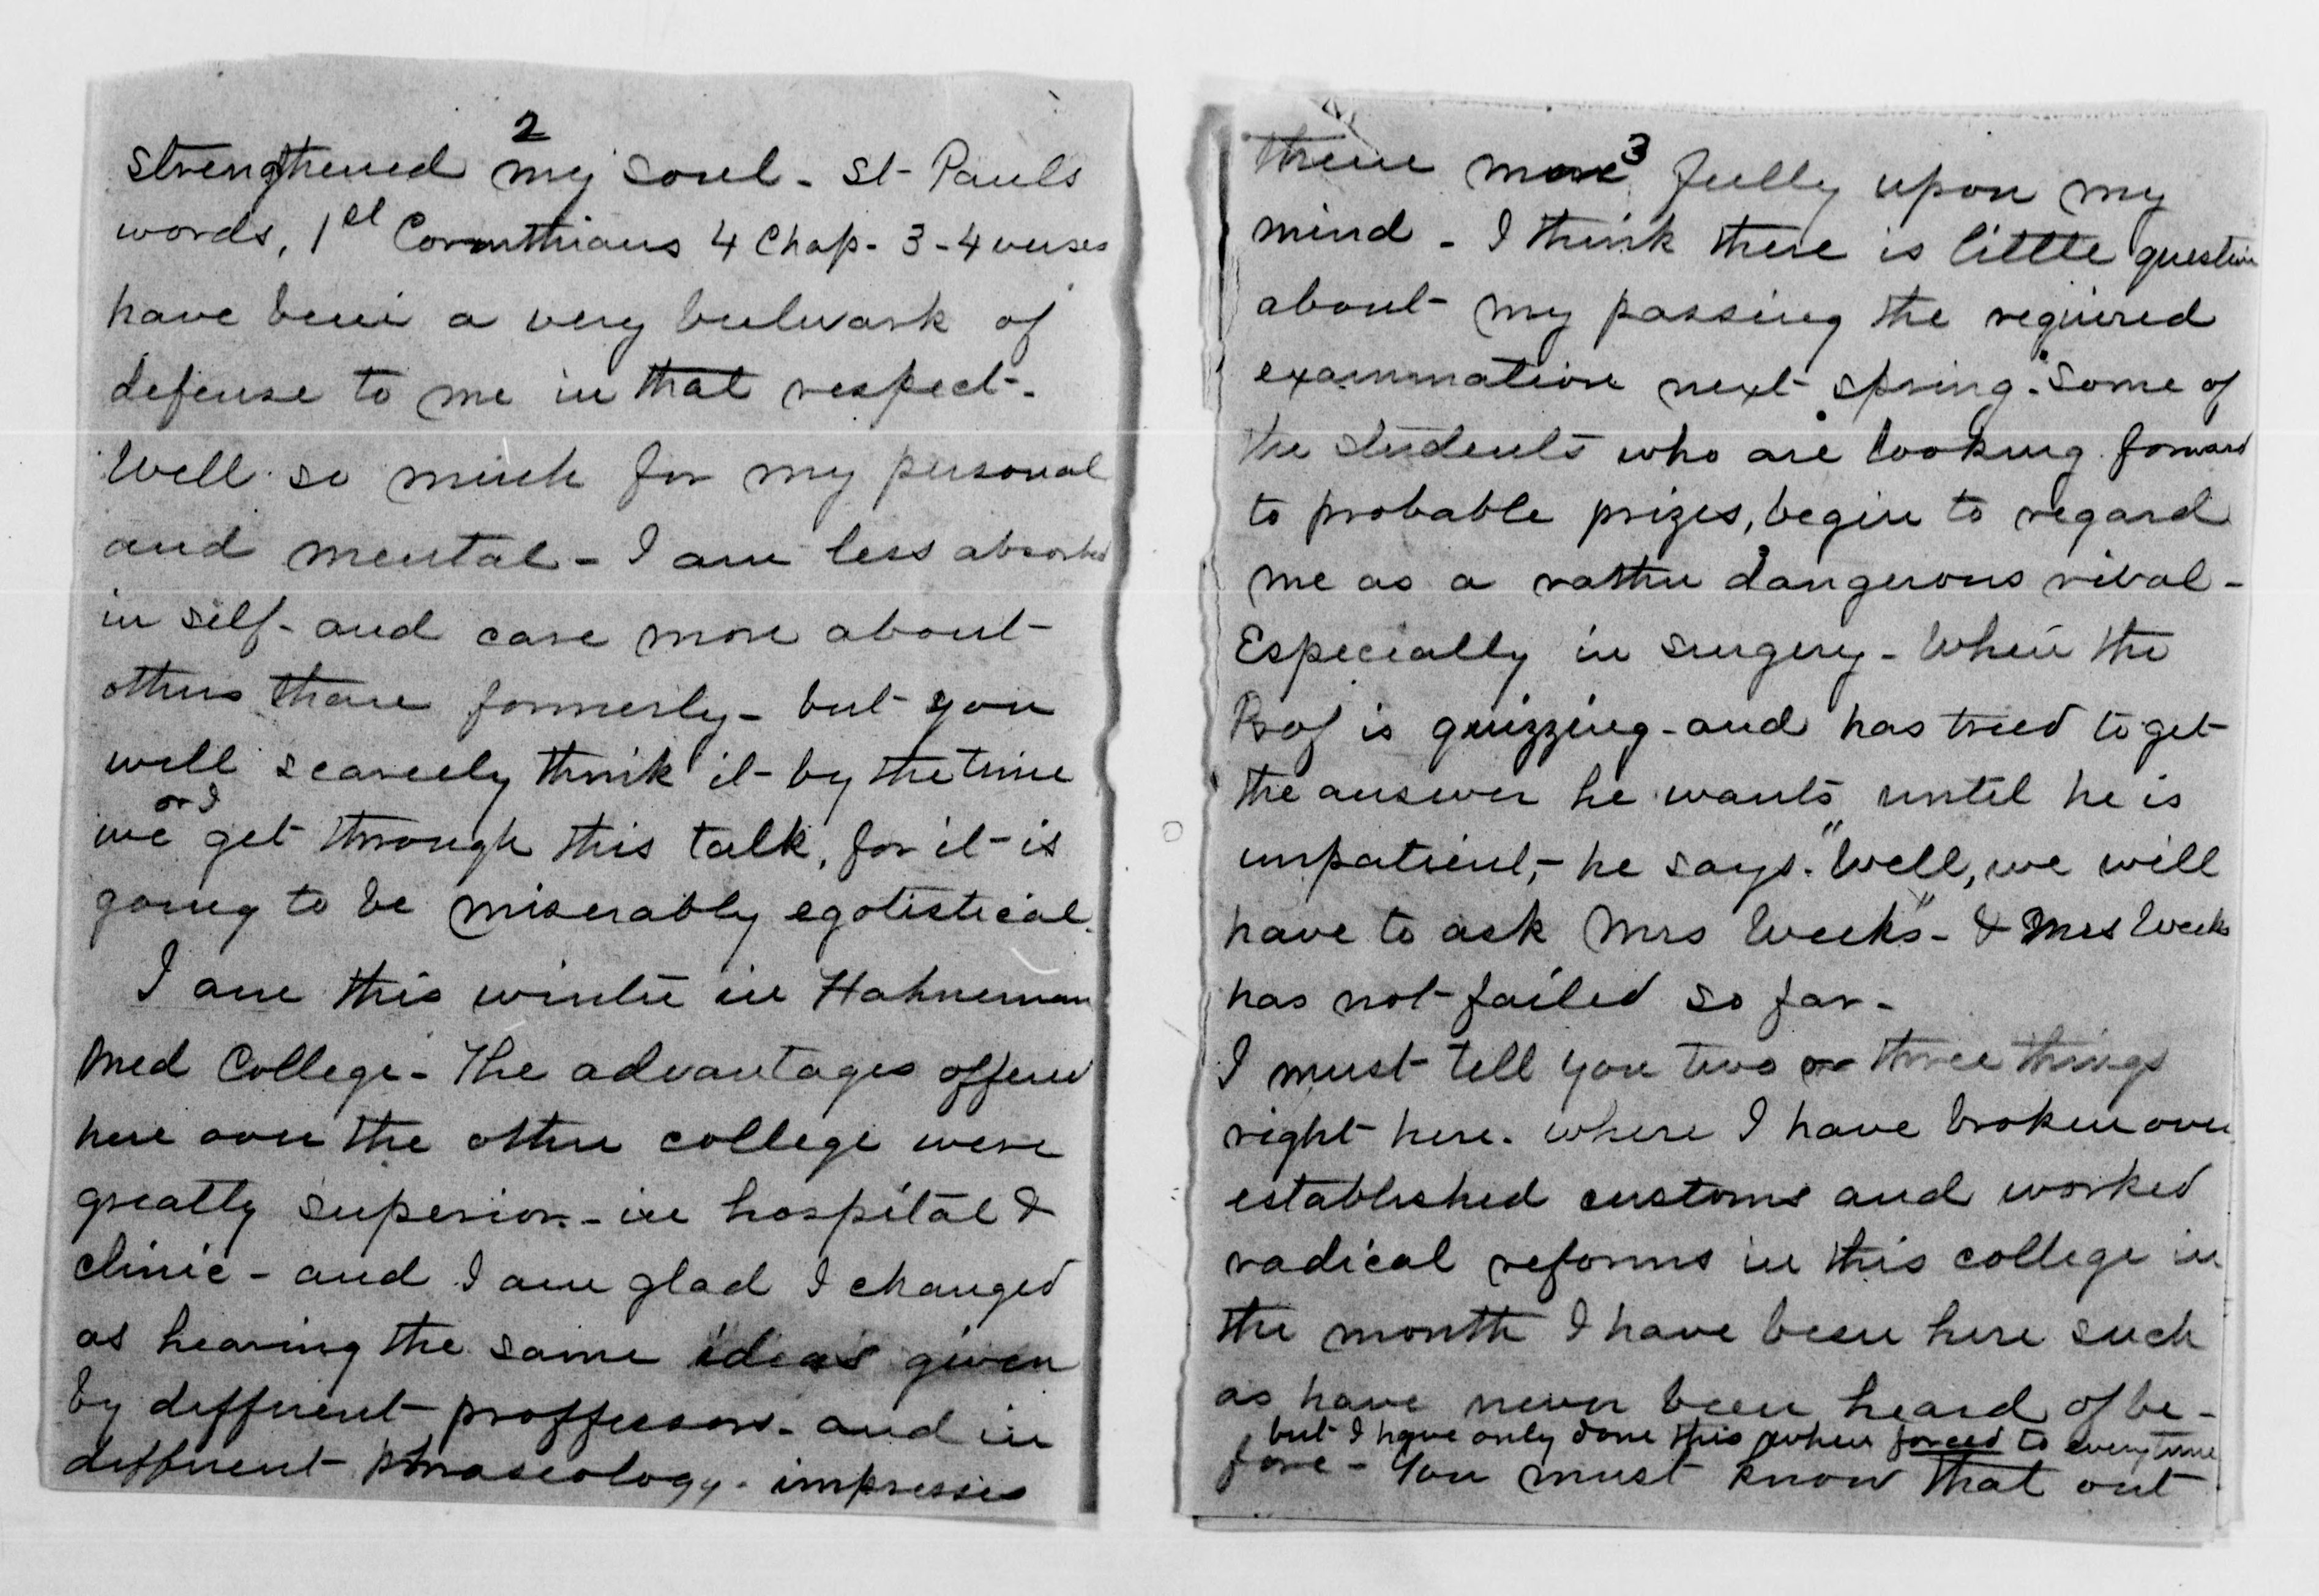 2
strengthened my soul - St Pauls
words, 1st Corinthians 4 Chap - 3-4 verses
have been a very bulwark of
defense to me in that respect -
Well so much for my personal
and mental - I am less absorbed
in self - and care more about
others than formerly - but you
will scarcely think it - by the time
or I
we get through this talk, for it is
going to be miserably egotistical.
I am this winter in Hahneman
Med College - The advantages offered
here over the other college were
greatly superior - in hospital &
clinic - and I am glad I changed
as hearing the same ideas given
by different proffessors - and in
different phraseology - impresses
3
them more fully upon my
mind - I think there is little question
about my passing the required
examination next spring. Some of
the students who are looking forward
to probable prizes, begin to regard
me as a rather dangerous rival -
Especially in surgery - When the
Prof is quizzing - and has tried to get
the answer he wants until he is
impatient, - he says. "Well, we will
have to ask Mrs Weeks" - & Mrs Weeks
has not failed so far -
I must tell you two or three things
right here. where I have broken over
established customs and worked
radical reforms in this college in
the month I have been here such
as have never been heard of be-
but I have only done this when forced to every time
fore - You must know that out